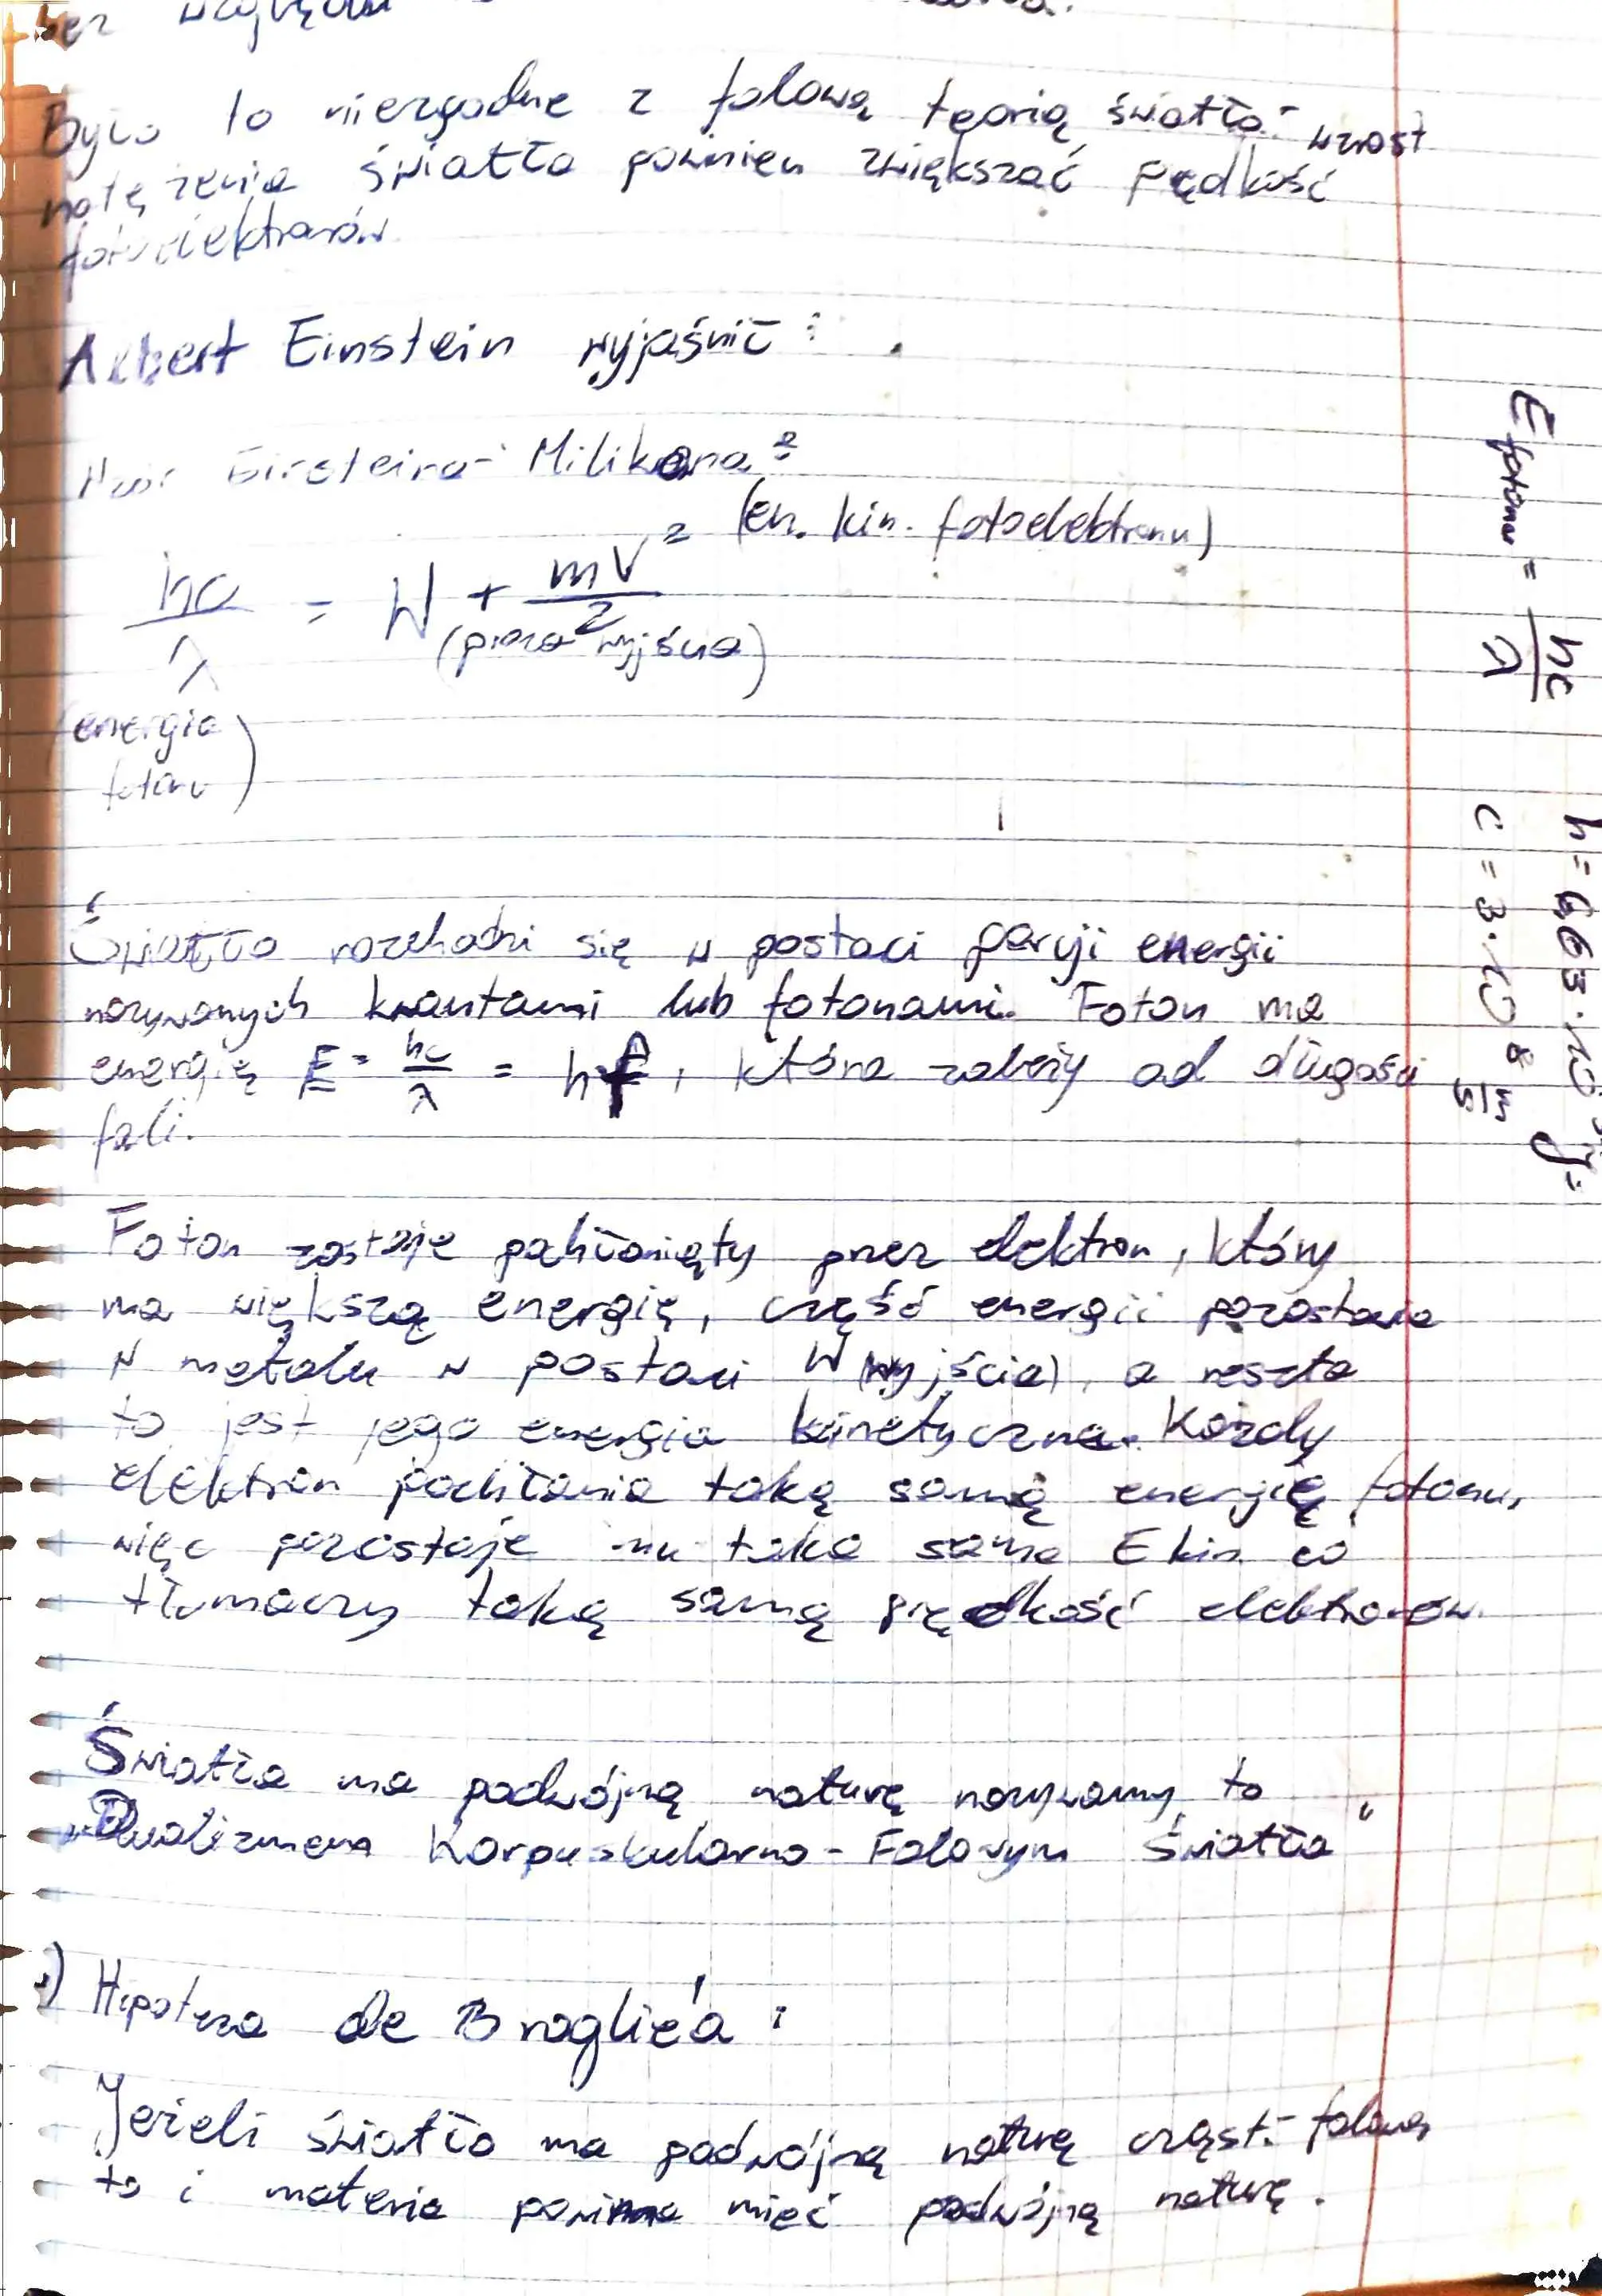 bez względu
Było to niezgodne z falową teorią światła - wzrost
natężenia światła powinien zwiększać prędkość
fotoelektronów.
Albert Einstein wyjaśnił:
Wzór Einsteina - Milikana:
(en. kin. fotoelektronu)
hc/λ = W + mV²/2
(praca wyjścia)
(energia
fotonu)
Światło rozchodzi się w postaci porcji energii
nazywanych kwantami lub fotonami. Foton ma
energię E = hc/λ = hf, która zależy od długości
fali.
Foton zostaje pochłonięty przez elektron, który
ma większą energię, część energii pozostawia
w metalu w postaci W (wyjścia), a reszta
to jest jego energia kinetyczna. Każdy
elektron pochłania taką samą energię fotonu,
więc pozostaje mu taka sama Ekin co
tłumaczy taką samą prędkość elektronów.
Światło ma podwójną naturę nazywamy to
„Dualizmem Korpuskularno - Falowym Światła"
Hipoteza de Broglie'a:
Jeżeli światło ma podwójną naturę cząst. - falową
to i materia powinna mieć podwójną naturę.
E fotonu = hc/λ
h = 6,63 · 10
c = 3 · 10⁸ m/s